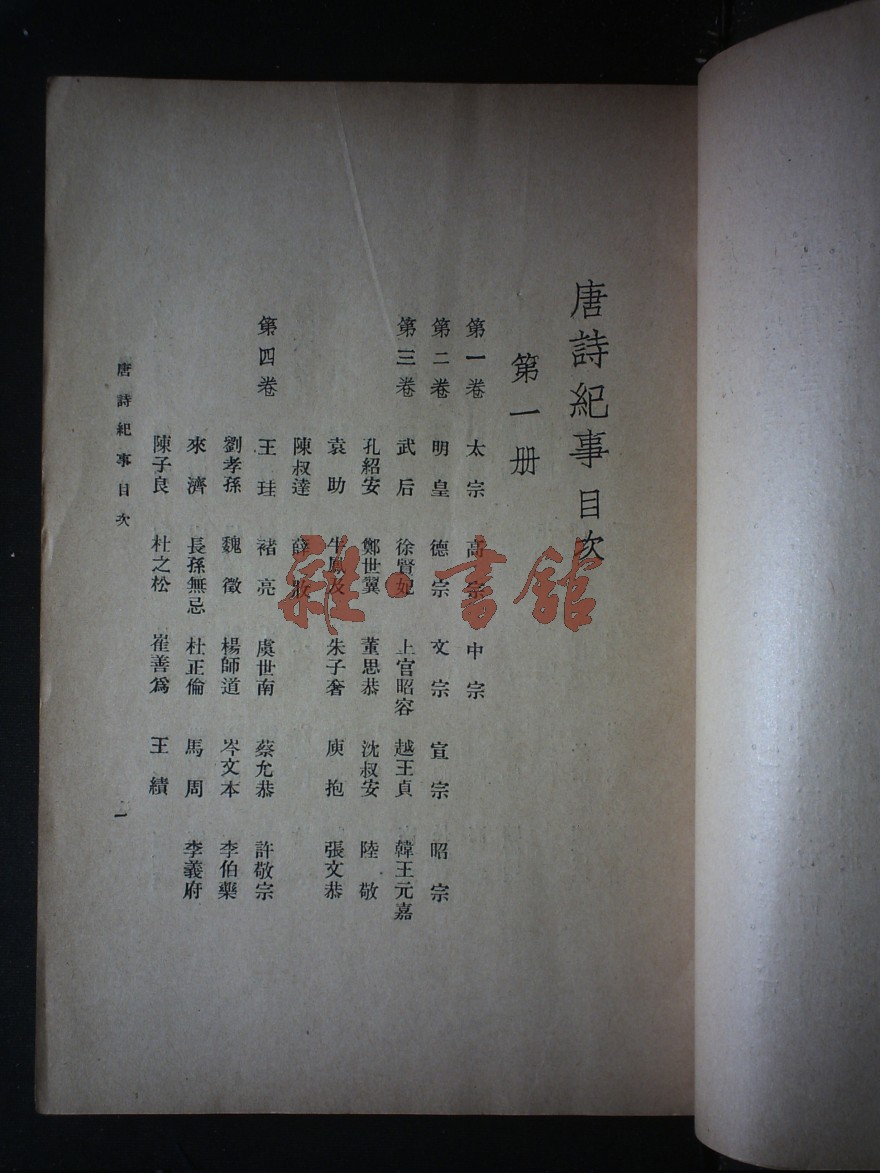 唐詩紀事目次
第一册
第一卷 太宗 高宗 中宗
第二卷 明皇 德宗 文宗 宣宗 昭宗
第三卷 武后 徐賢妃 上官昭容 越王貞 韓王元嘉
孔紹安 鄭世翼 董思恭 沈叔安 陸敬
袁助 牛鳳及 朱子奢 庾抱 張文恭
陳叔達 薛
第四卷 王珪 褚亮 虞世南 蔡允恭 許敬宗
劉孝孫 魏徵 楊師道 岑文本 李伯藥
來濟 長孫無忌 杜正倫 馬周 李義府
陳子良 杜之松 崔善爲 王績
唐詩紀事目次
一
雜·書館